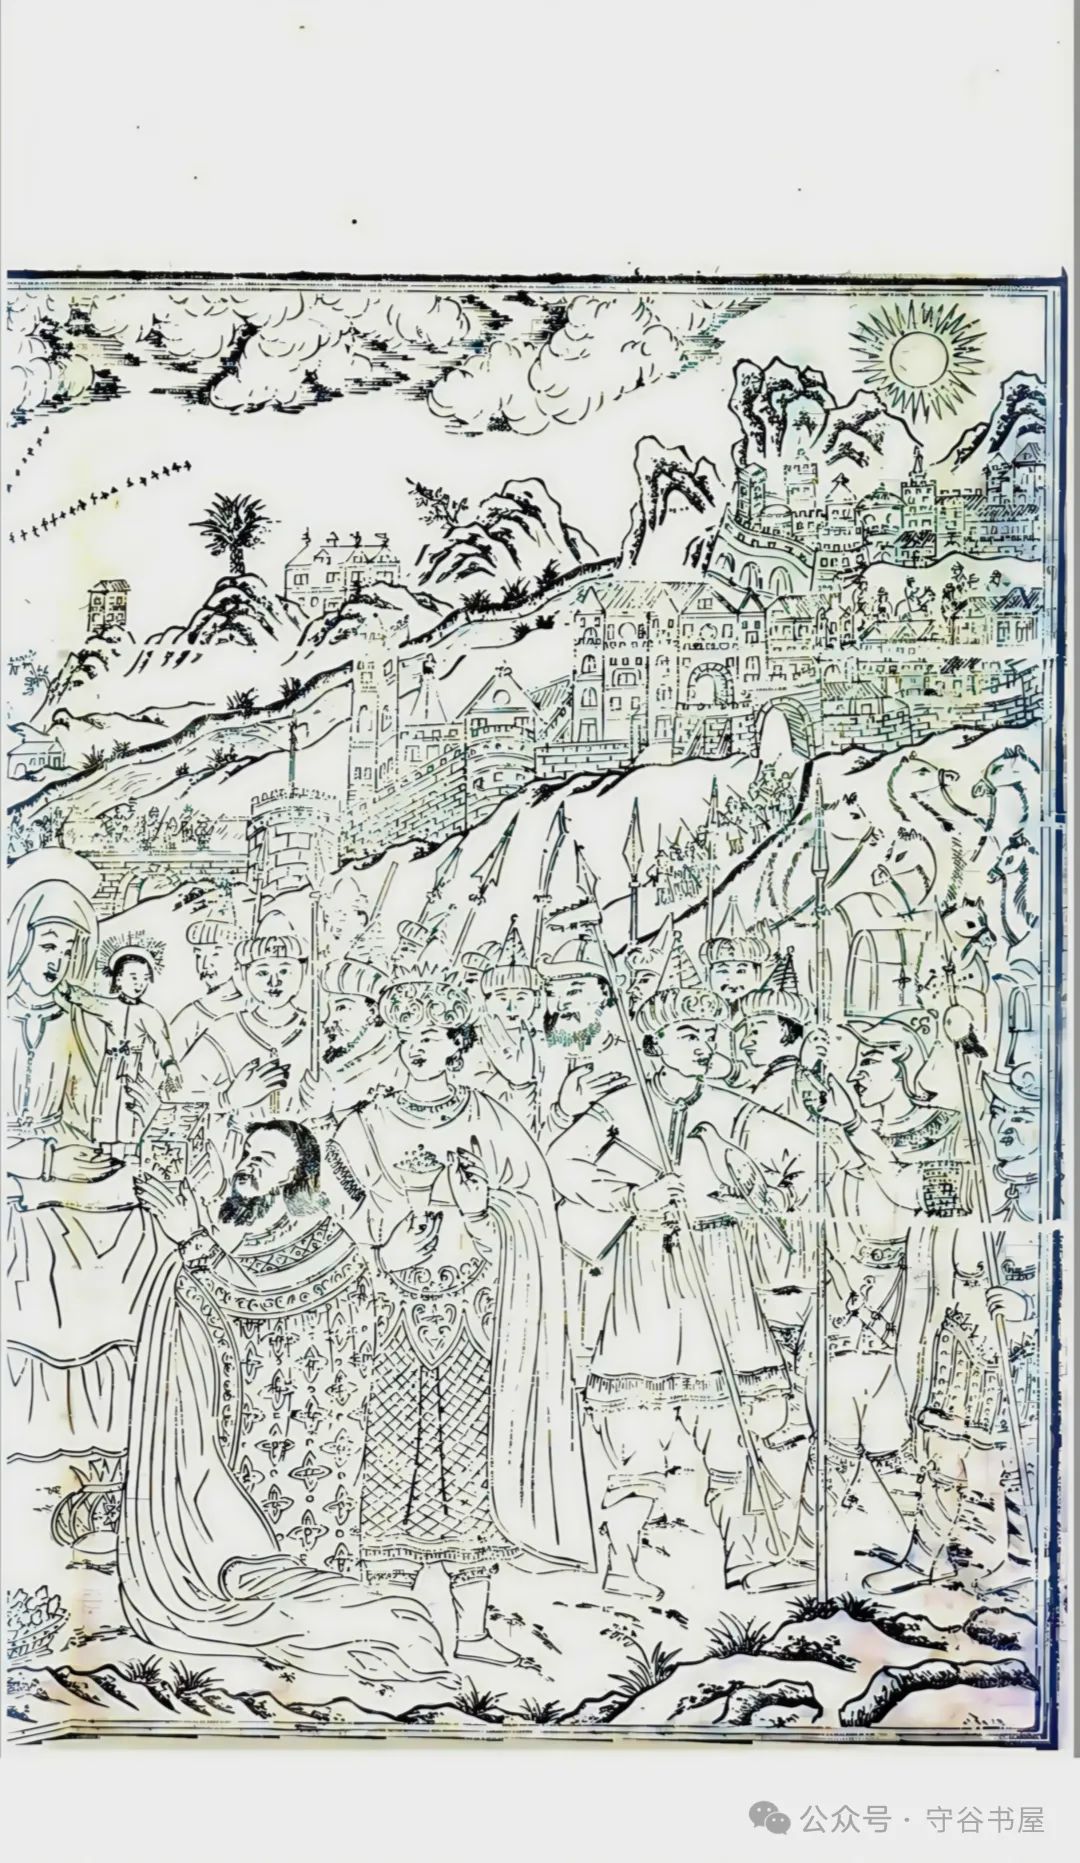 公众号 · 守谷书屋